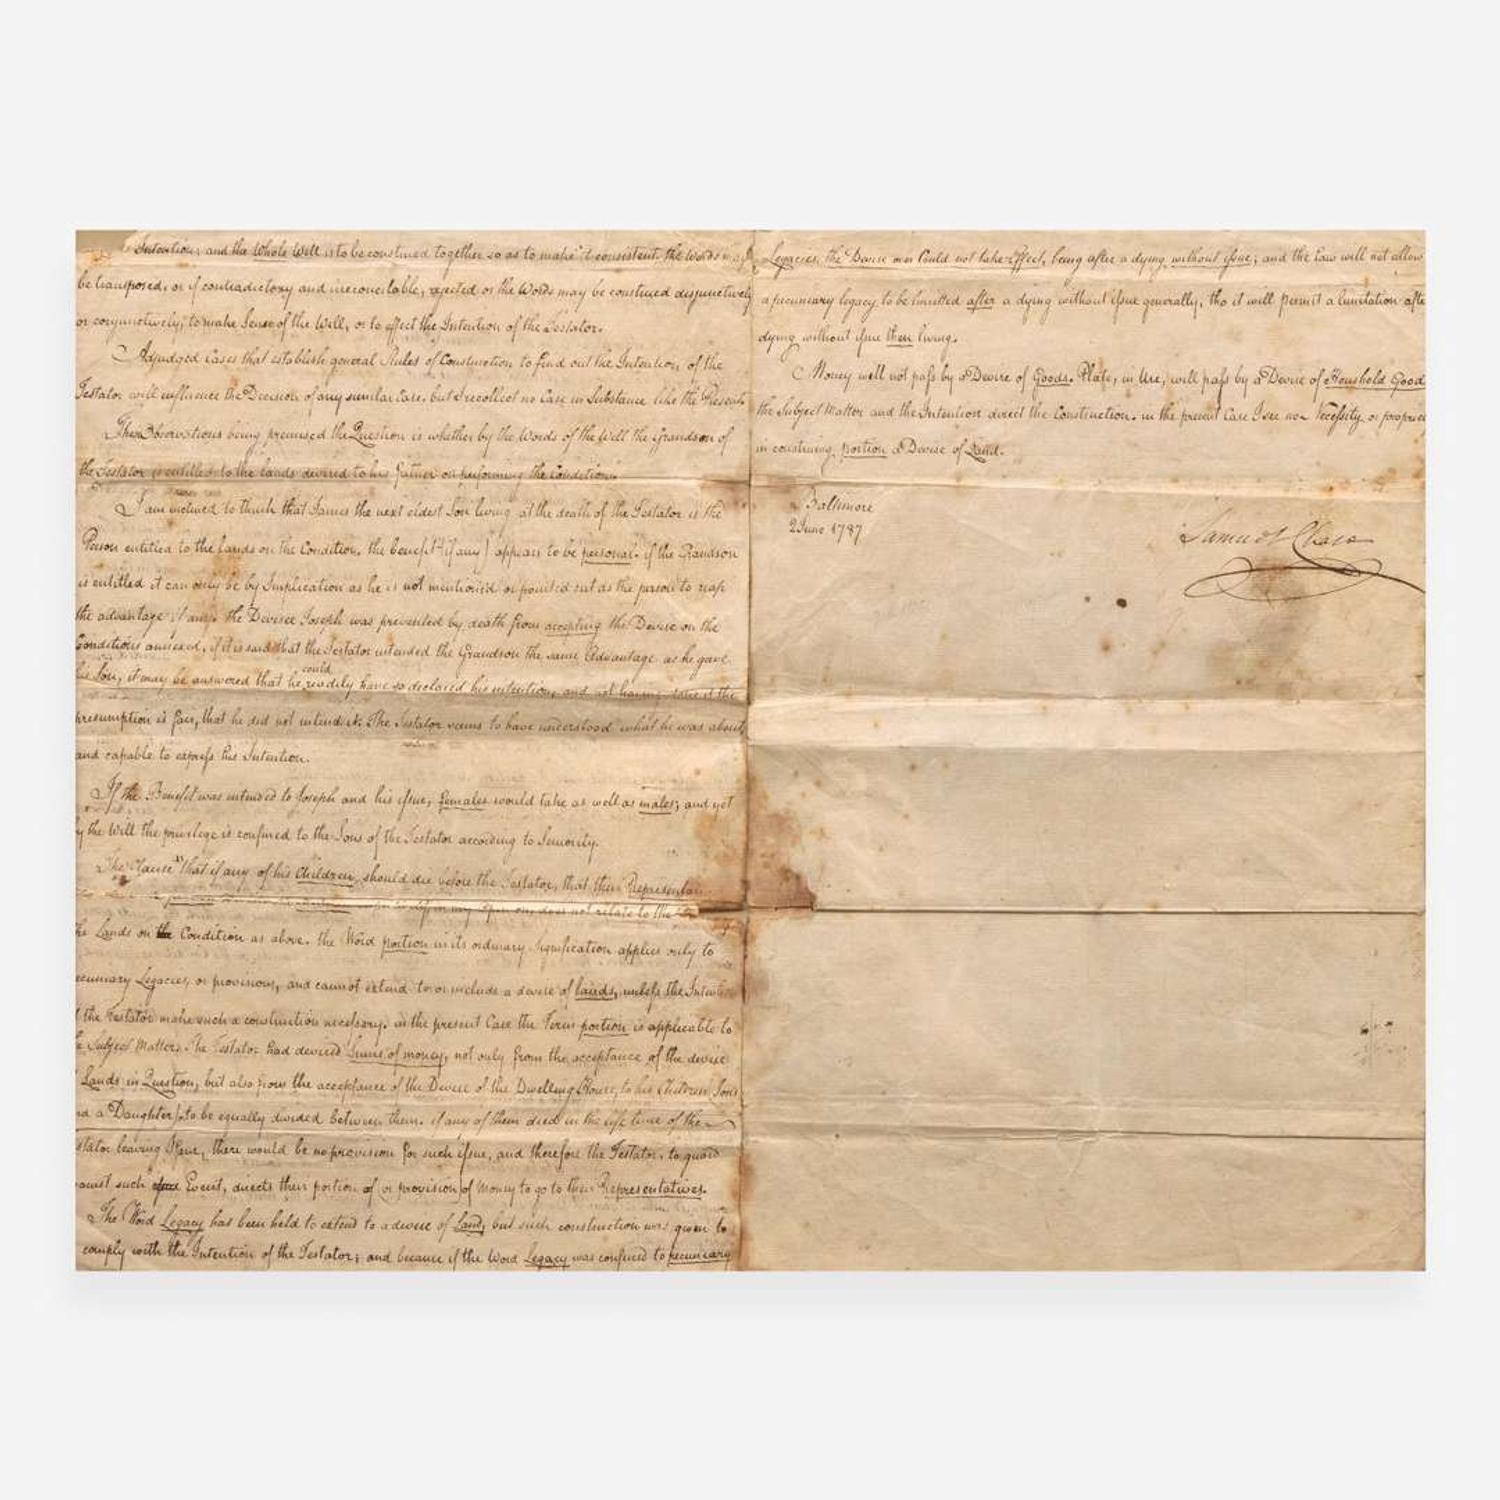 Intention; and the Whole Will is to be construed together so as to make it consistent. the Words may
be transposed, or if contradictory and irreconcilable, rejected or the Words may be construed disjunctively
or conjunctively, to make Sense of the Will, or to effect the Intention of the Testator.
Adjudged Cases that establish general Rules of Construction to find out the Intention of the
Testator will influence the Decision of any similar Case. but I recollect no Case in Substance like the Present.
These Observations being premised the Question is whether by the Words of the Will the Grandson of
the Testator is entitled to the Lands devised to his Father on performing the Conditions
I am inclined to think that James the next eldest Son living at the death of the Testator is the
Person entitled to the Lands on the Condition. the benefit (if any) appears to be personal. if the Grandson
is entitled it can only be by Implication as he is not mentioned or pointed out as the person to reap
the advantage, if any. the Devisee Joseph was prevented by death from accepting the Devise on the
Conditions annexed. if it is said that the Testator intended the Grandson the same Advantage as he gave
could
his Son, it may be answered that he readily have so declared his intention, and not having done it the
presumption is fair, that he did not intend it. The Testator seems to have understood what he was about,
and capable to express his Intention.
If the Benefit was intended to Joseph and his issue, females would take as well as males; and yet
by the Will the privilege is confined to the Sons of the Testator according to Seniority.
The Clause "that if any of his Children should die before the Testator, that their Representa
in my opinion, does not relate to the
the Lands on the Condition as above. the Word portion in its ordinary signification applies only to
ecuniary Legacies, or provisions, and cannot extend to or include a devise of lands, unless the Intention
the Testator make such a construction necessary. in the present Case the Term portion is applicable to
Subject Matter. the Testator had devised Sums of money, not only from the acceptance of the devise
Lands in Question, but also from the acceptance of the Devise of the Dwelling House, to his Children (Sons
nd a Daughter) to be equally divided between them. if any of them died in the life time of the
stator leaving Issue, there would be no provision for such issue, and therefore the Testator, to guard
ainst such Event, directs their portion of (or provision) of Money to go to their Representatives.
The Word Legacy has been held to extend to a devise of Land, but such construction was given to
comply with the Intention of the Testator; and because if the Word Legacy was confined to pecuniary
Legacies, the Devise over Could not take Effect, being after a dying without issue; and the Law will not allow
a pecuniary legacy to be limitted after a dying without issue generally, tho it will permit a limitation afte
dying without issue then living.
Money will not pass by a Devise of Goods. Plate, in Use, will pass by a Devise of Houshold Good
the Subject Matter and the Intention direct the Construction. in the present Case I see no Necessity or propriet
in construing portion a Devise of Land.
Baltimore
2 June 1787
Samuel Chase